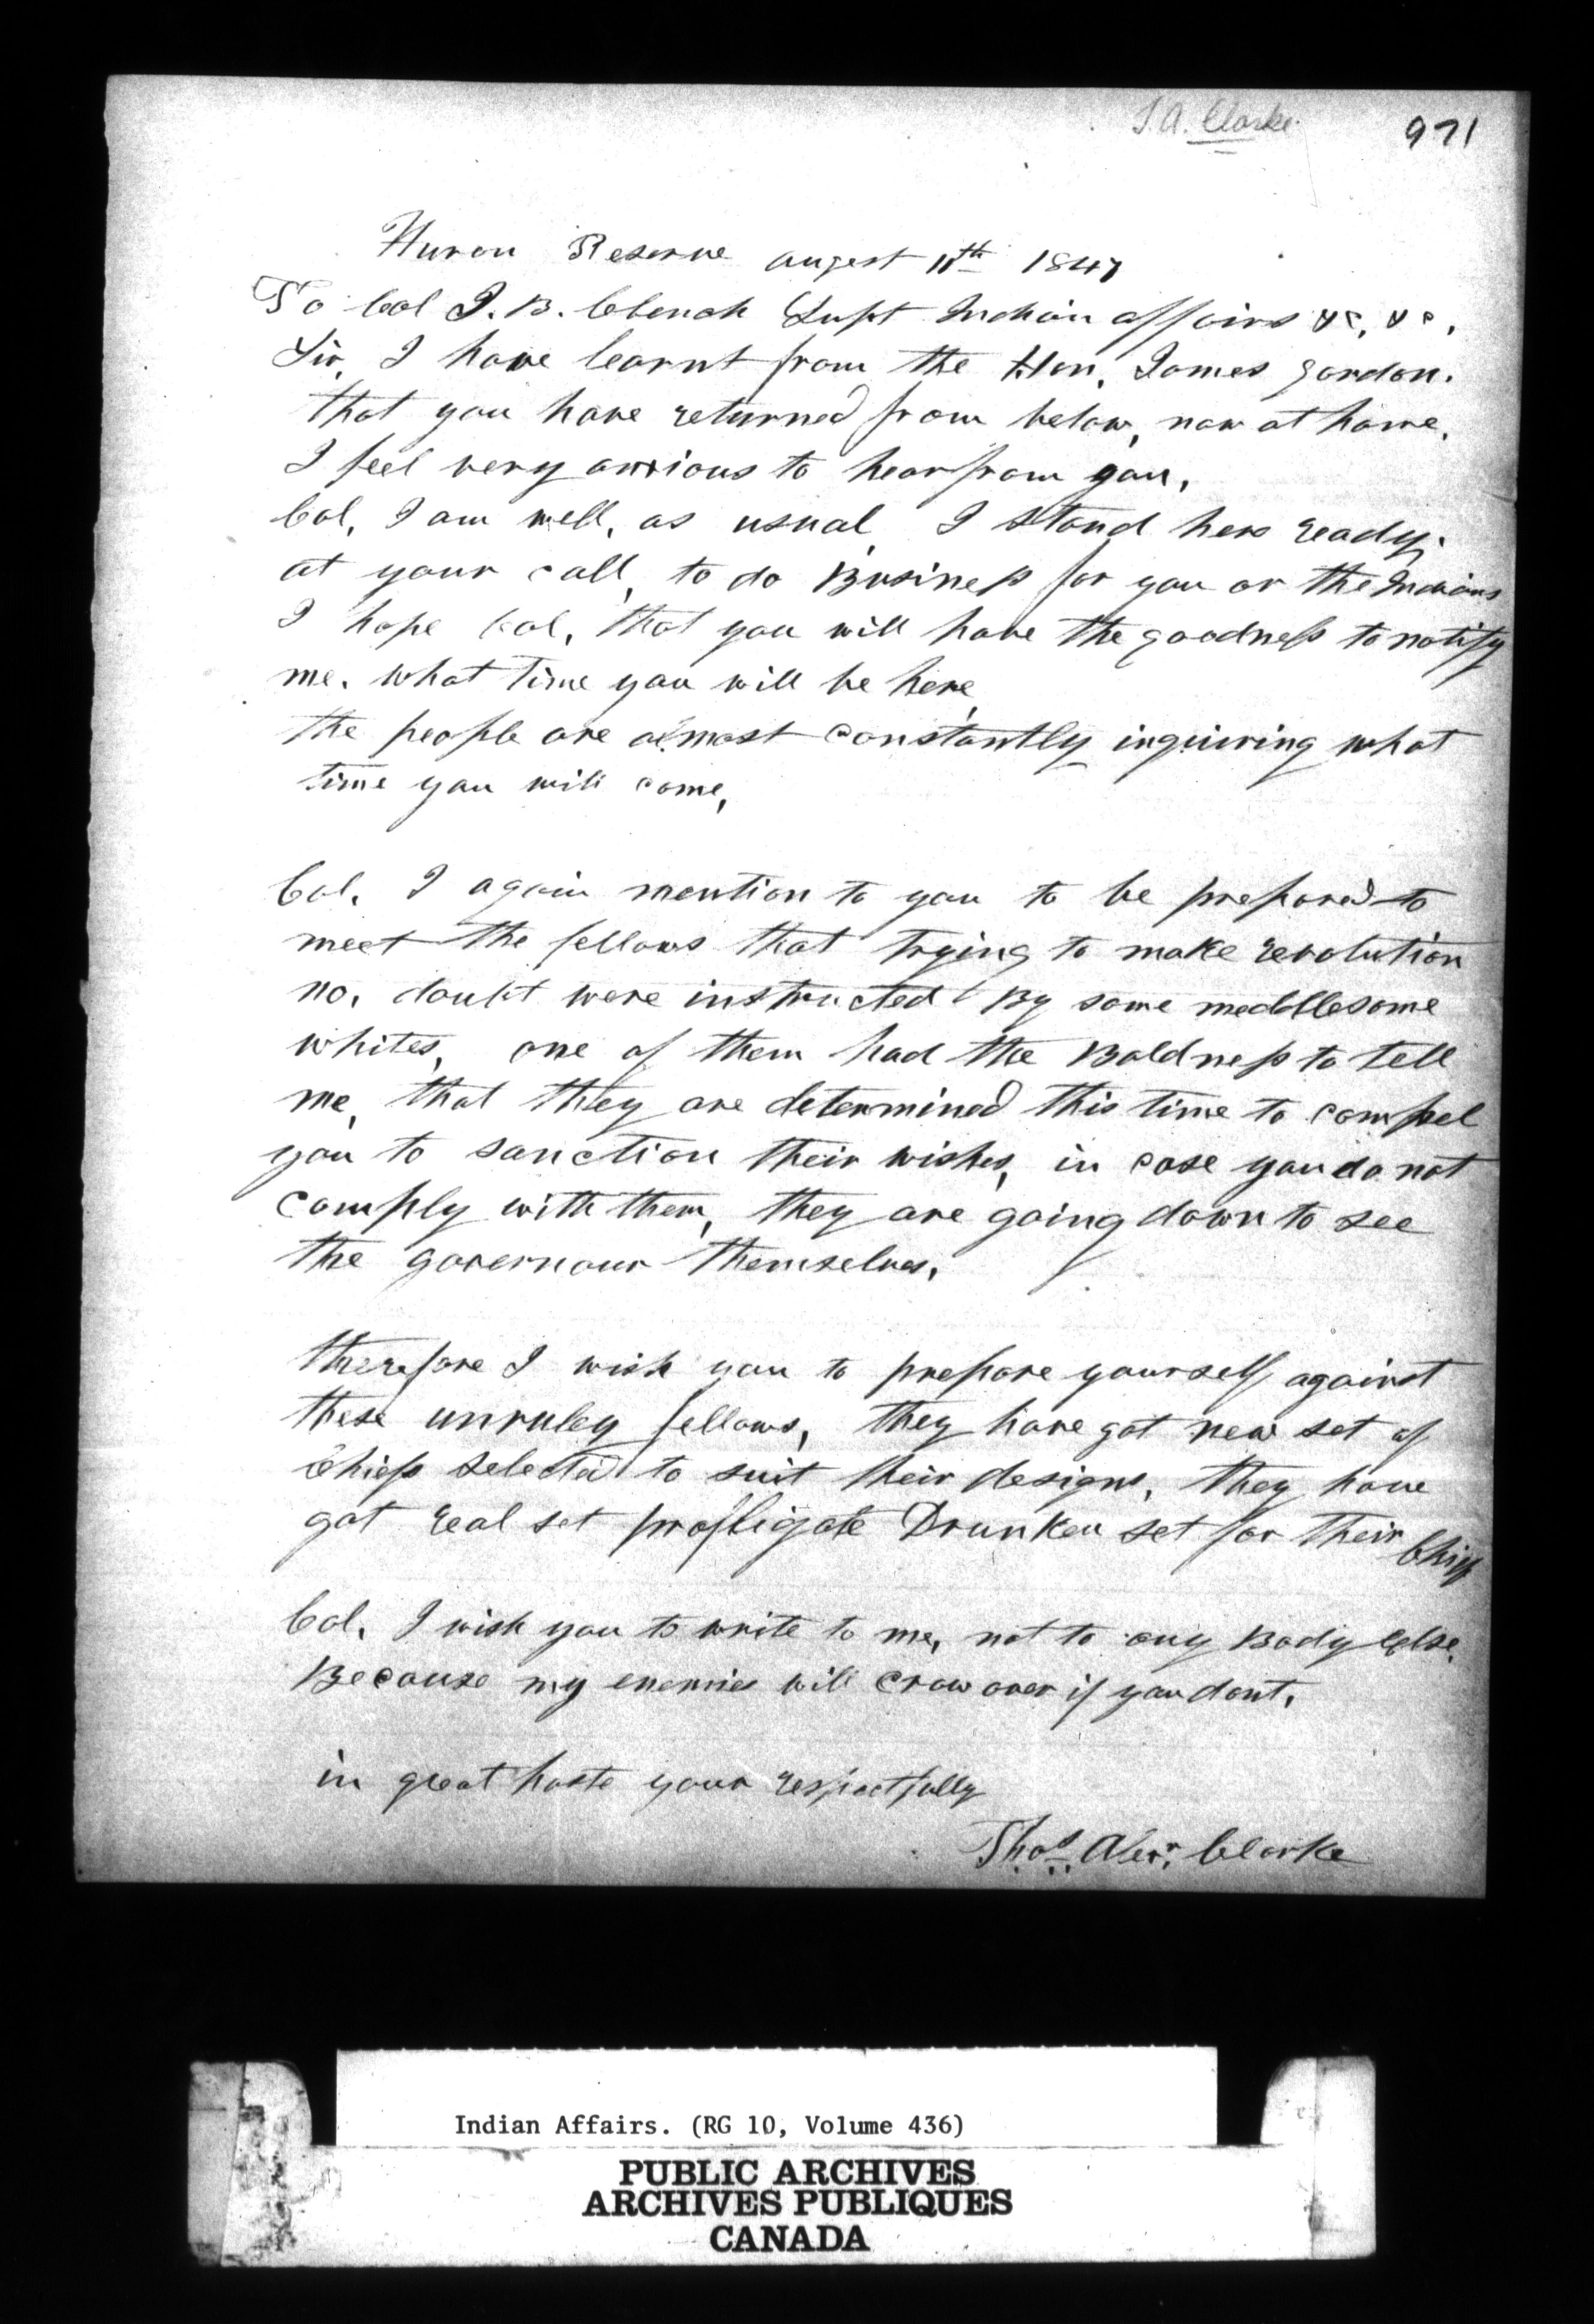 T. A. Clarke.
971
Huron Reserve augest 11th 1847
To Col J. B. Clench Supt Indian affairs &c, &c,
Sir, I have learnt from the Hon, James Gordon.
that you have returned from below, now at home,
I feel very anxious to hear from you,
Col, I am well, as usual, I stand here ready.
at your call, to do Business for you or the Indians
I hope Col, that you will have the goodness to notify
me. what time you will be here,
the people are almost constantly inquiring what
time you will come,
Col. I again mention to you to be prepared to
meet the fellows that trying to make revolution
no, doubt were instructed By some meddlesome
whites, one of them had the Boldness to tell
me, that they are determined this time to compel
you to sanction their wishes, in case you do not
comply with them, they are going down to see
the governour themselves,
therefore I wish you to prepare yourself against
these unruley fellows, they have got new set of
Chiefs selected to suit their designs, they have
got real set profligate Drunken set for their Chiefs
Col, I wish you to write to me, not to any Body else,
Because my enemies will crow over if you dont,
in great haste your respectfully
Thos. Alexr. Clarke
Indian Affairs. (RG 10, Volume 436)
PUBLIC ARCHIVES
ARCHIVES PUBLIQUES
CANADA